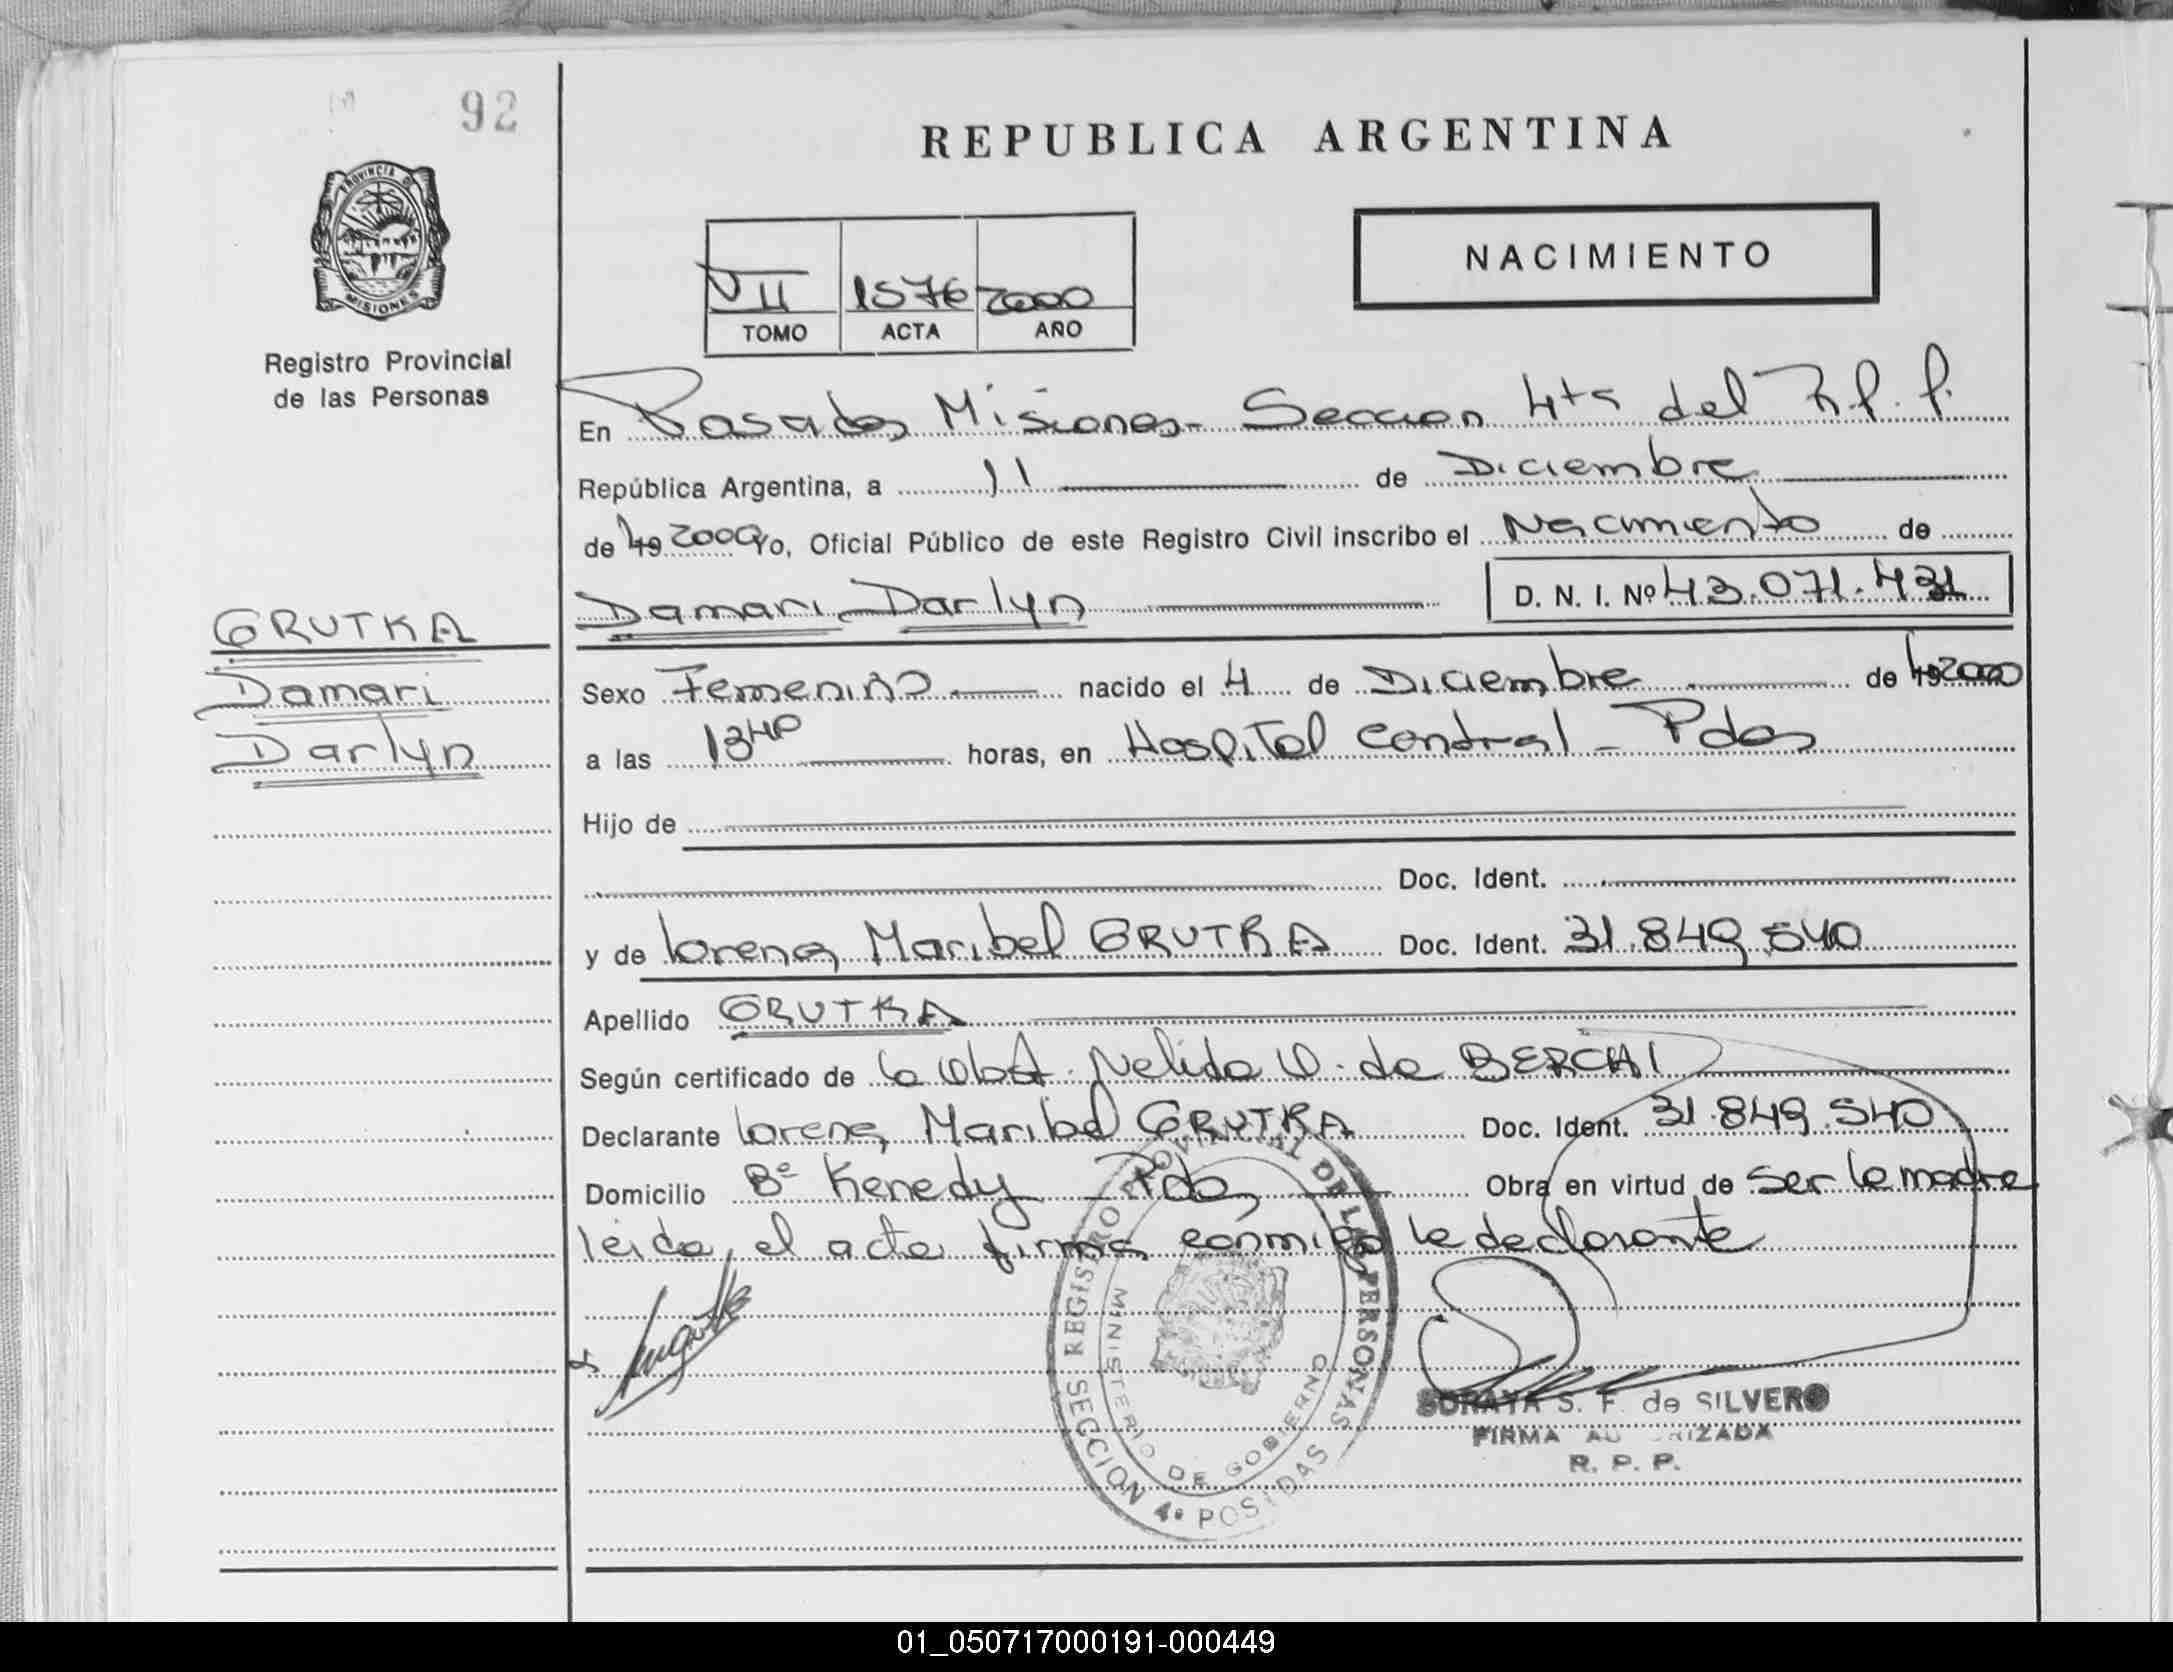 92
REPUBLICA ARGENTINA
PROVINCIA DE
MISIONES
Registro Provincial
de las Personas
VII 1576 2000
TOMO ACTA AÑO
NACIMIENTO
En Posadas Misiones - Seccion 4ta del R.P.P.
República Argentina, a 11 de Diciembre
de 19 2000 Yo, Oficial Público de este Registro Civil inscribo el Nacimiento de
Damari Darlyn D. N. I. Nº 43.071.431
GRUTKA
Damari
Darlyn
Sexo Femenino nacido el 4 de Diciembre de 19 2000
a las 13HP horas, en Hospital Central - Pdas
Hijo de
Doc. Ident.
y de Lorena Maribel GRUTKA Doc. Ident. 31.849.540
Apellido GRUTKA
Según certificado de la Obst. Nelida O. de BERCHI
Declarante Lorena Maribel GRUTKA Doc. Ident. 31.849.540
Domicilio Bº Kenedy - Pdas Obra en virtud de ser la madre
leida el acta firma conmigo la declarante
REGISTRO PROVINCIAL DE LAS PERSONAS
MINISTERIO DE GOBIERNO
SECCION 4º POSADAS
SORAYA S. F. de SILVERO
FIRMA AUTORIZADA
R. P. P.
01_050717000191-000449